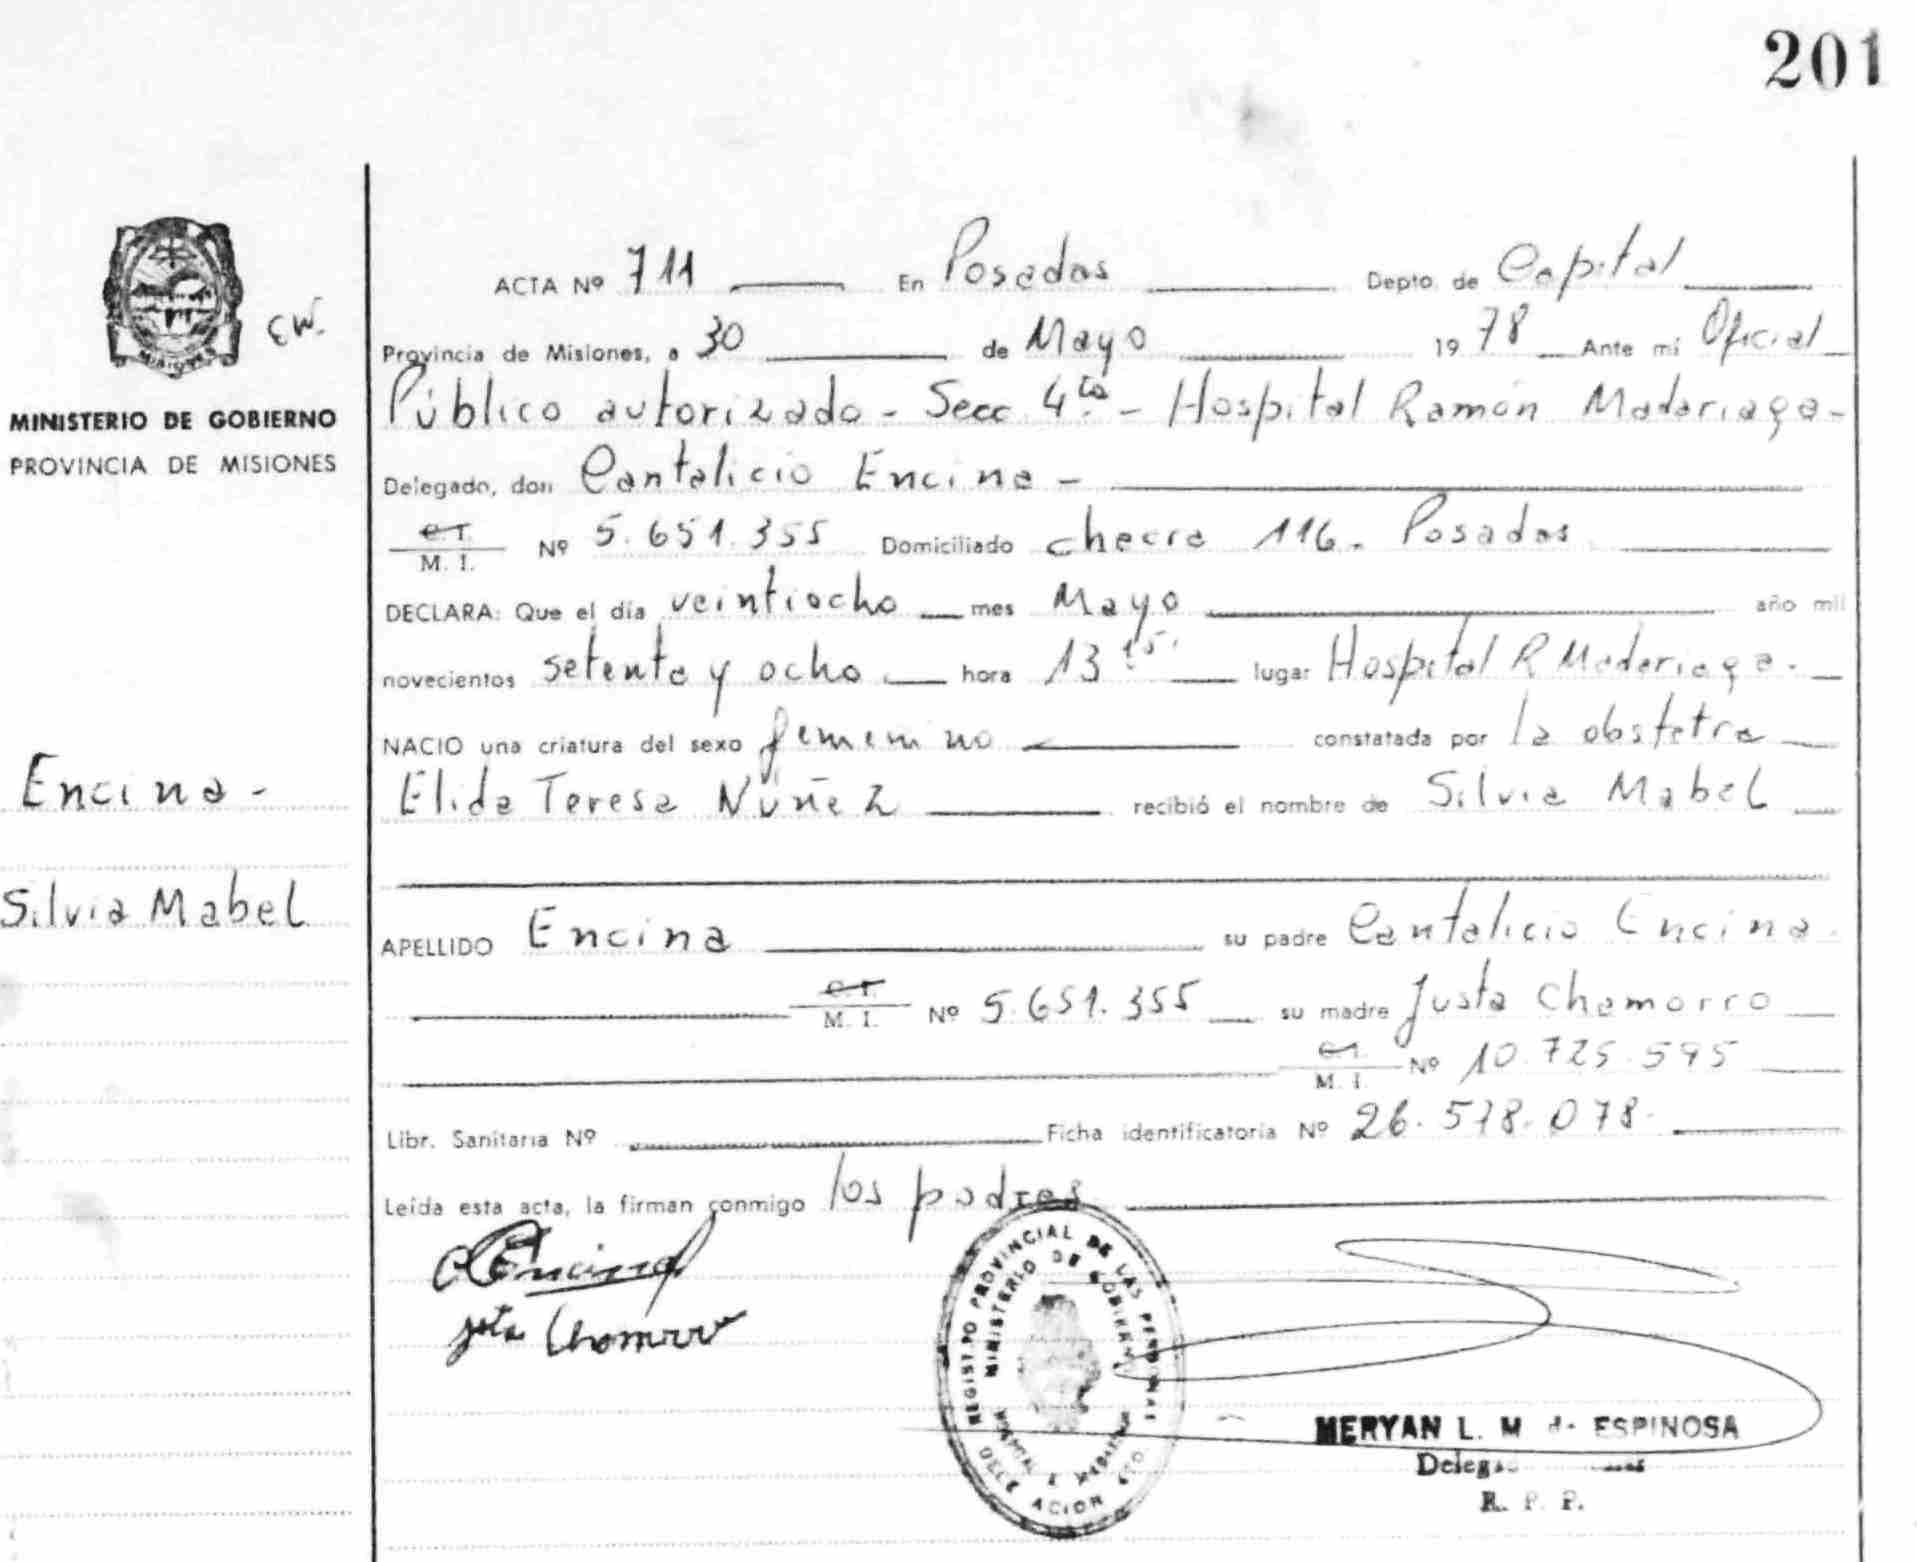 201
MISIONES
EW.
MINISTERIO DE GOBIERNO
PROVINCIA DE MISIONES
Encina -
Silvia Mabel
ACTA Nº 711 En Posadas Depto. de Capital
Provincia de Misiones, a 30 de Mayo 19 78 Ante mi Oficial
Público autorizado - Secc. 4ta - Hospital Ramón Madariaga -
Delegado, don Cantalicio Encina -
C. I.
M. I. Nº 5.651.355 Domiciliado checra 116. Posadas
DECLARA: Que el día veintiocho mes Mayo año mil
novecientos setenta y ocho hora 13 15. lugar Hospital R Madariaga.
NACIO una criatura del sexo femenino constatada por la obstetra
Elida Teresa Núñez recibió el nombre de Silvia Mabel
APELLIDO Encina su padre Cantalicio Encina.
C. I.
M. I. Nº 5.651.355 su madre Justa Chamorro
C. I.
M. I. Nº 10.725.595
Libr. Sanitaria Nº Ficha identificatoria Nº 26.578.078.
Leída esta acta, la firman conmigo los padres
C Encina
Chamorro
REGISTRO PROVINCIAL DE LAS PERSONAS
MINISTERIO DE GOBIERNO
HOSPITAL R. MADARIAGA
DELEGACION
MERYAN L. M de ESPINOSA
R. P. P.